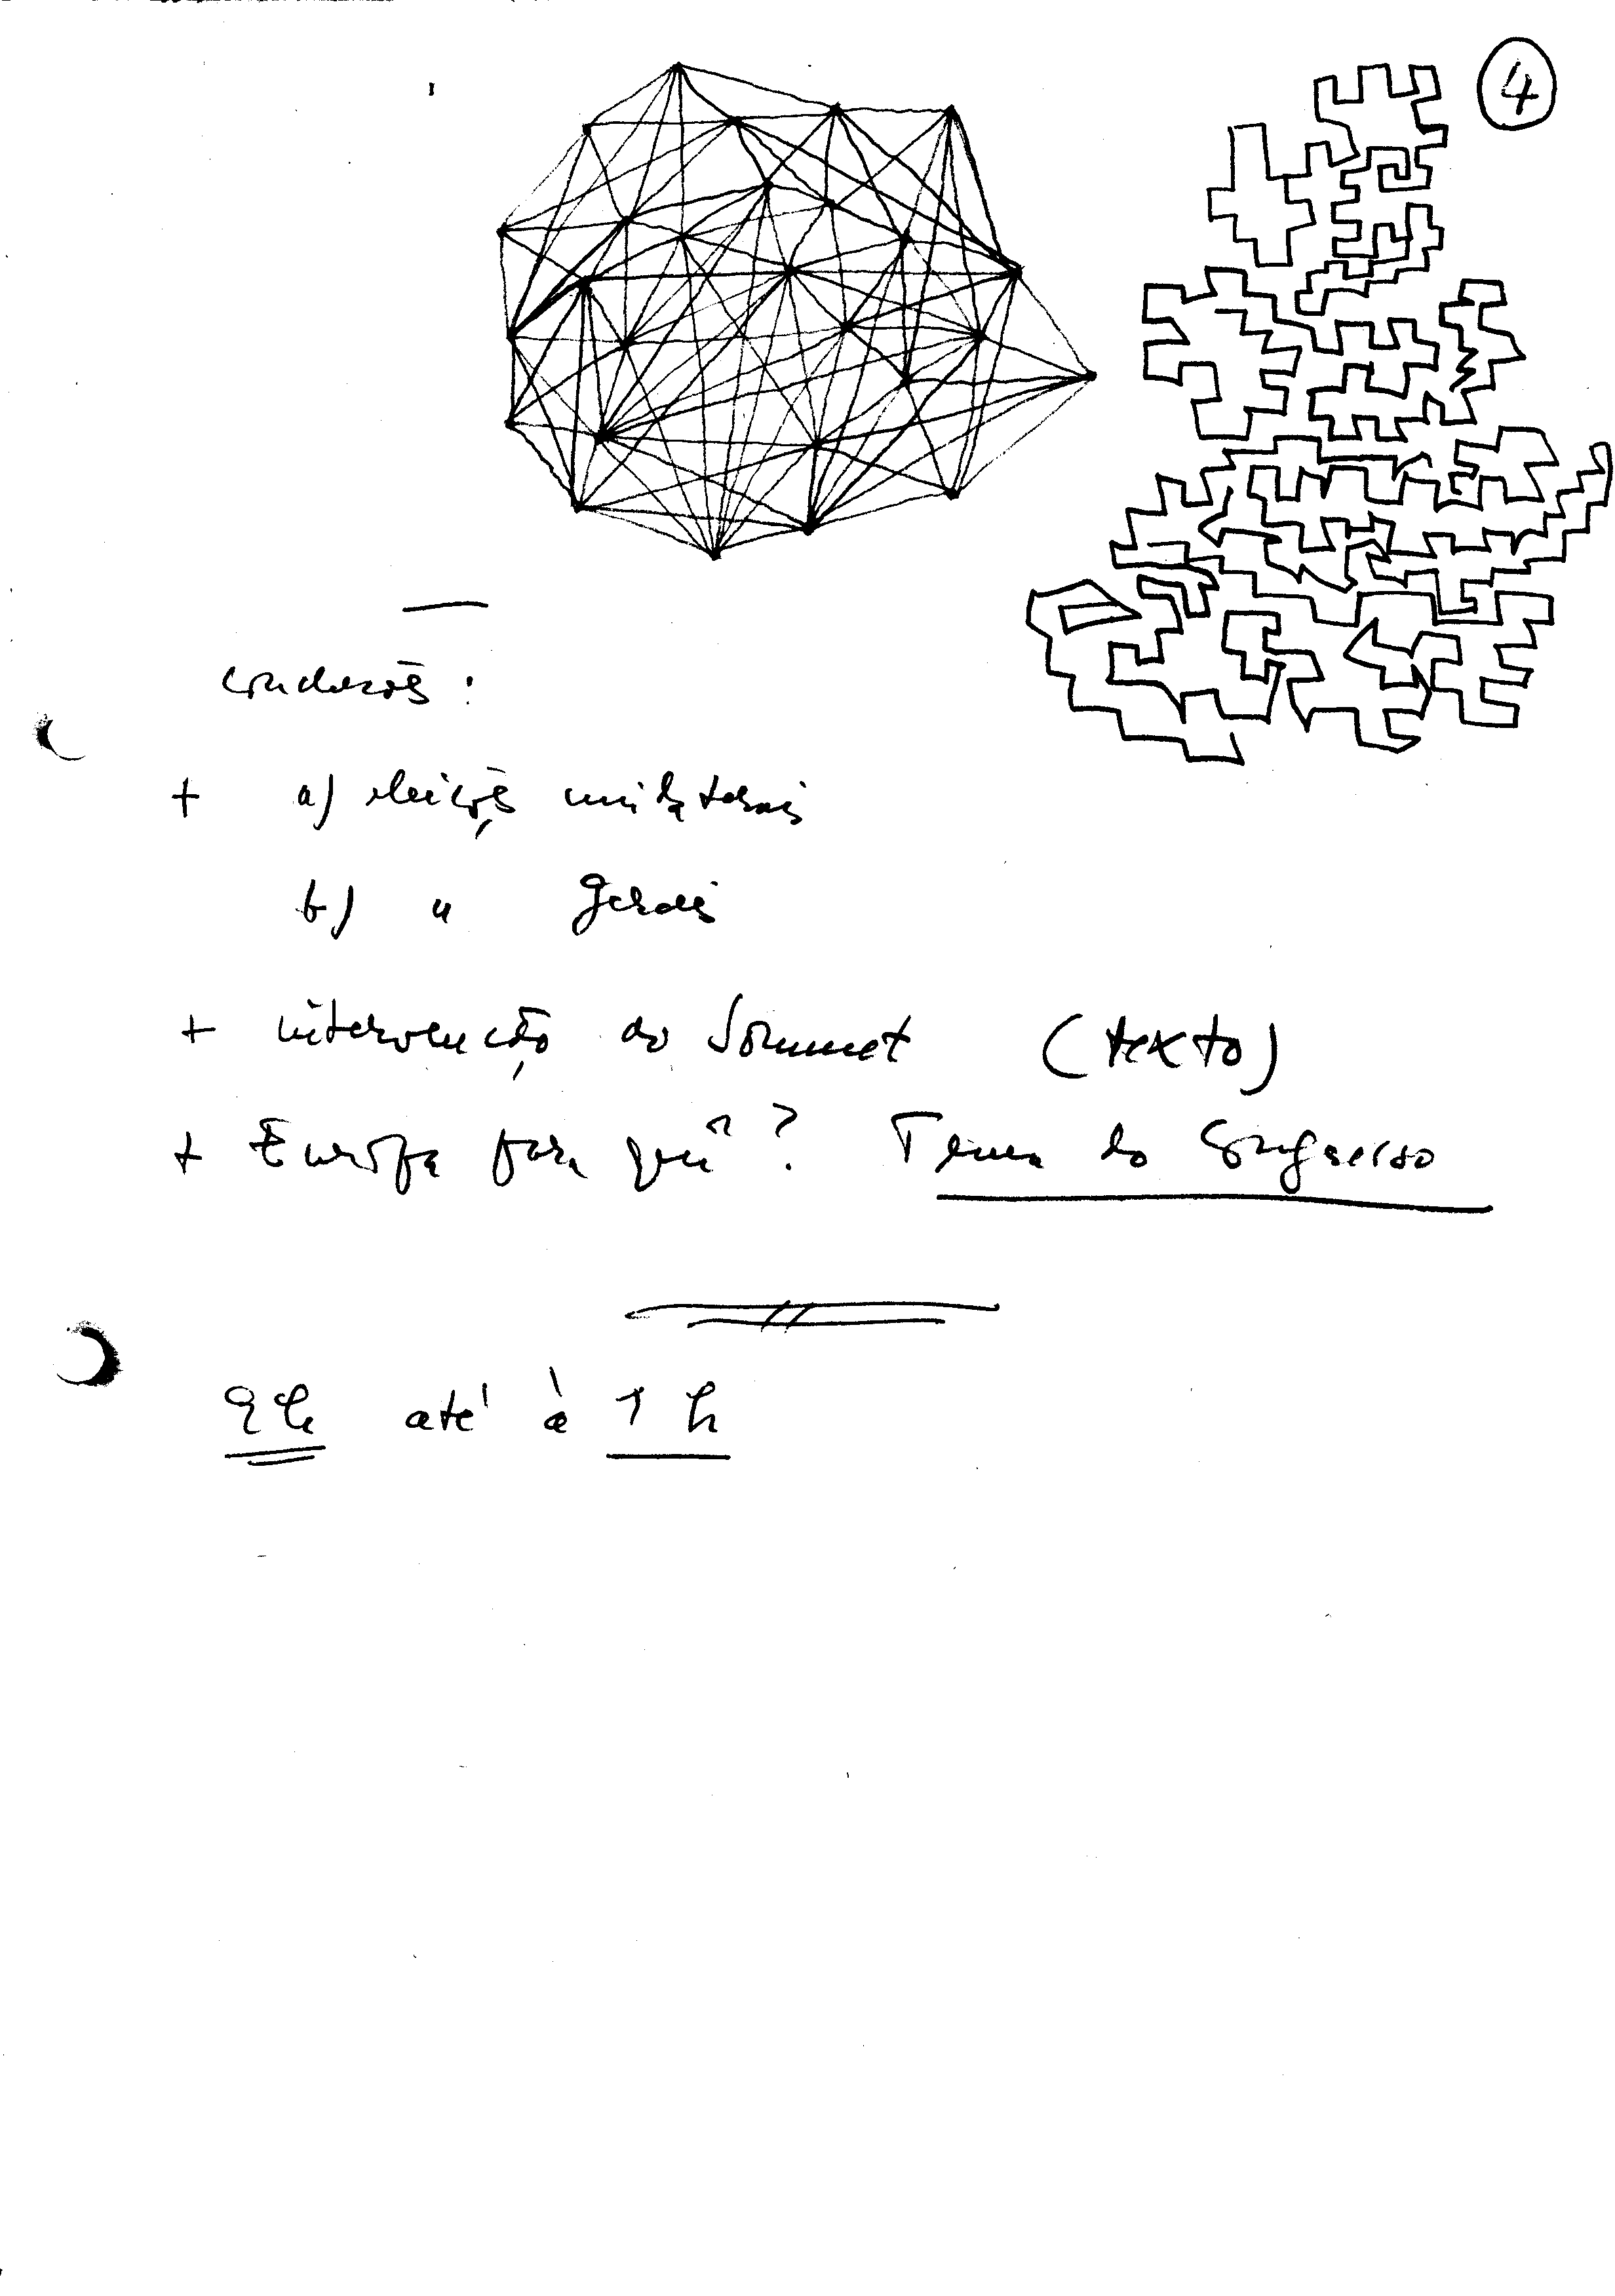 4
conclusões :
+ a) eleições unilaterais
b) " gerais
+ intervenção do Sommet (texto)
+ Europa para quê ? Tema do Congresso
9h até à 1 h